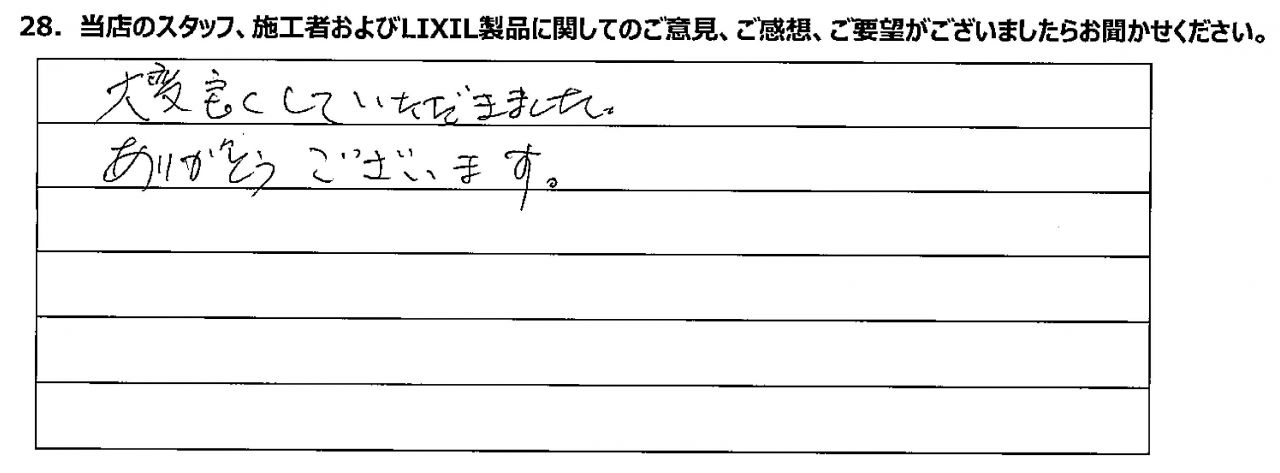 28. 当店のスタッフ、施工者およびLIXIL製品に関してのご意見、ご感想、ご要望がございましたらお聞かせください。
大変良くしていただきました。
ありがとうございます。